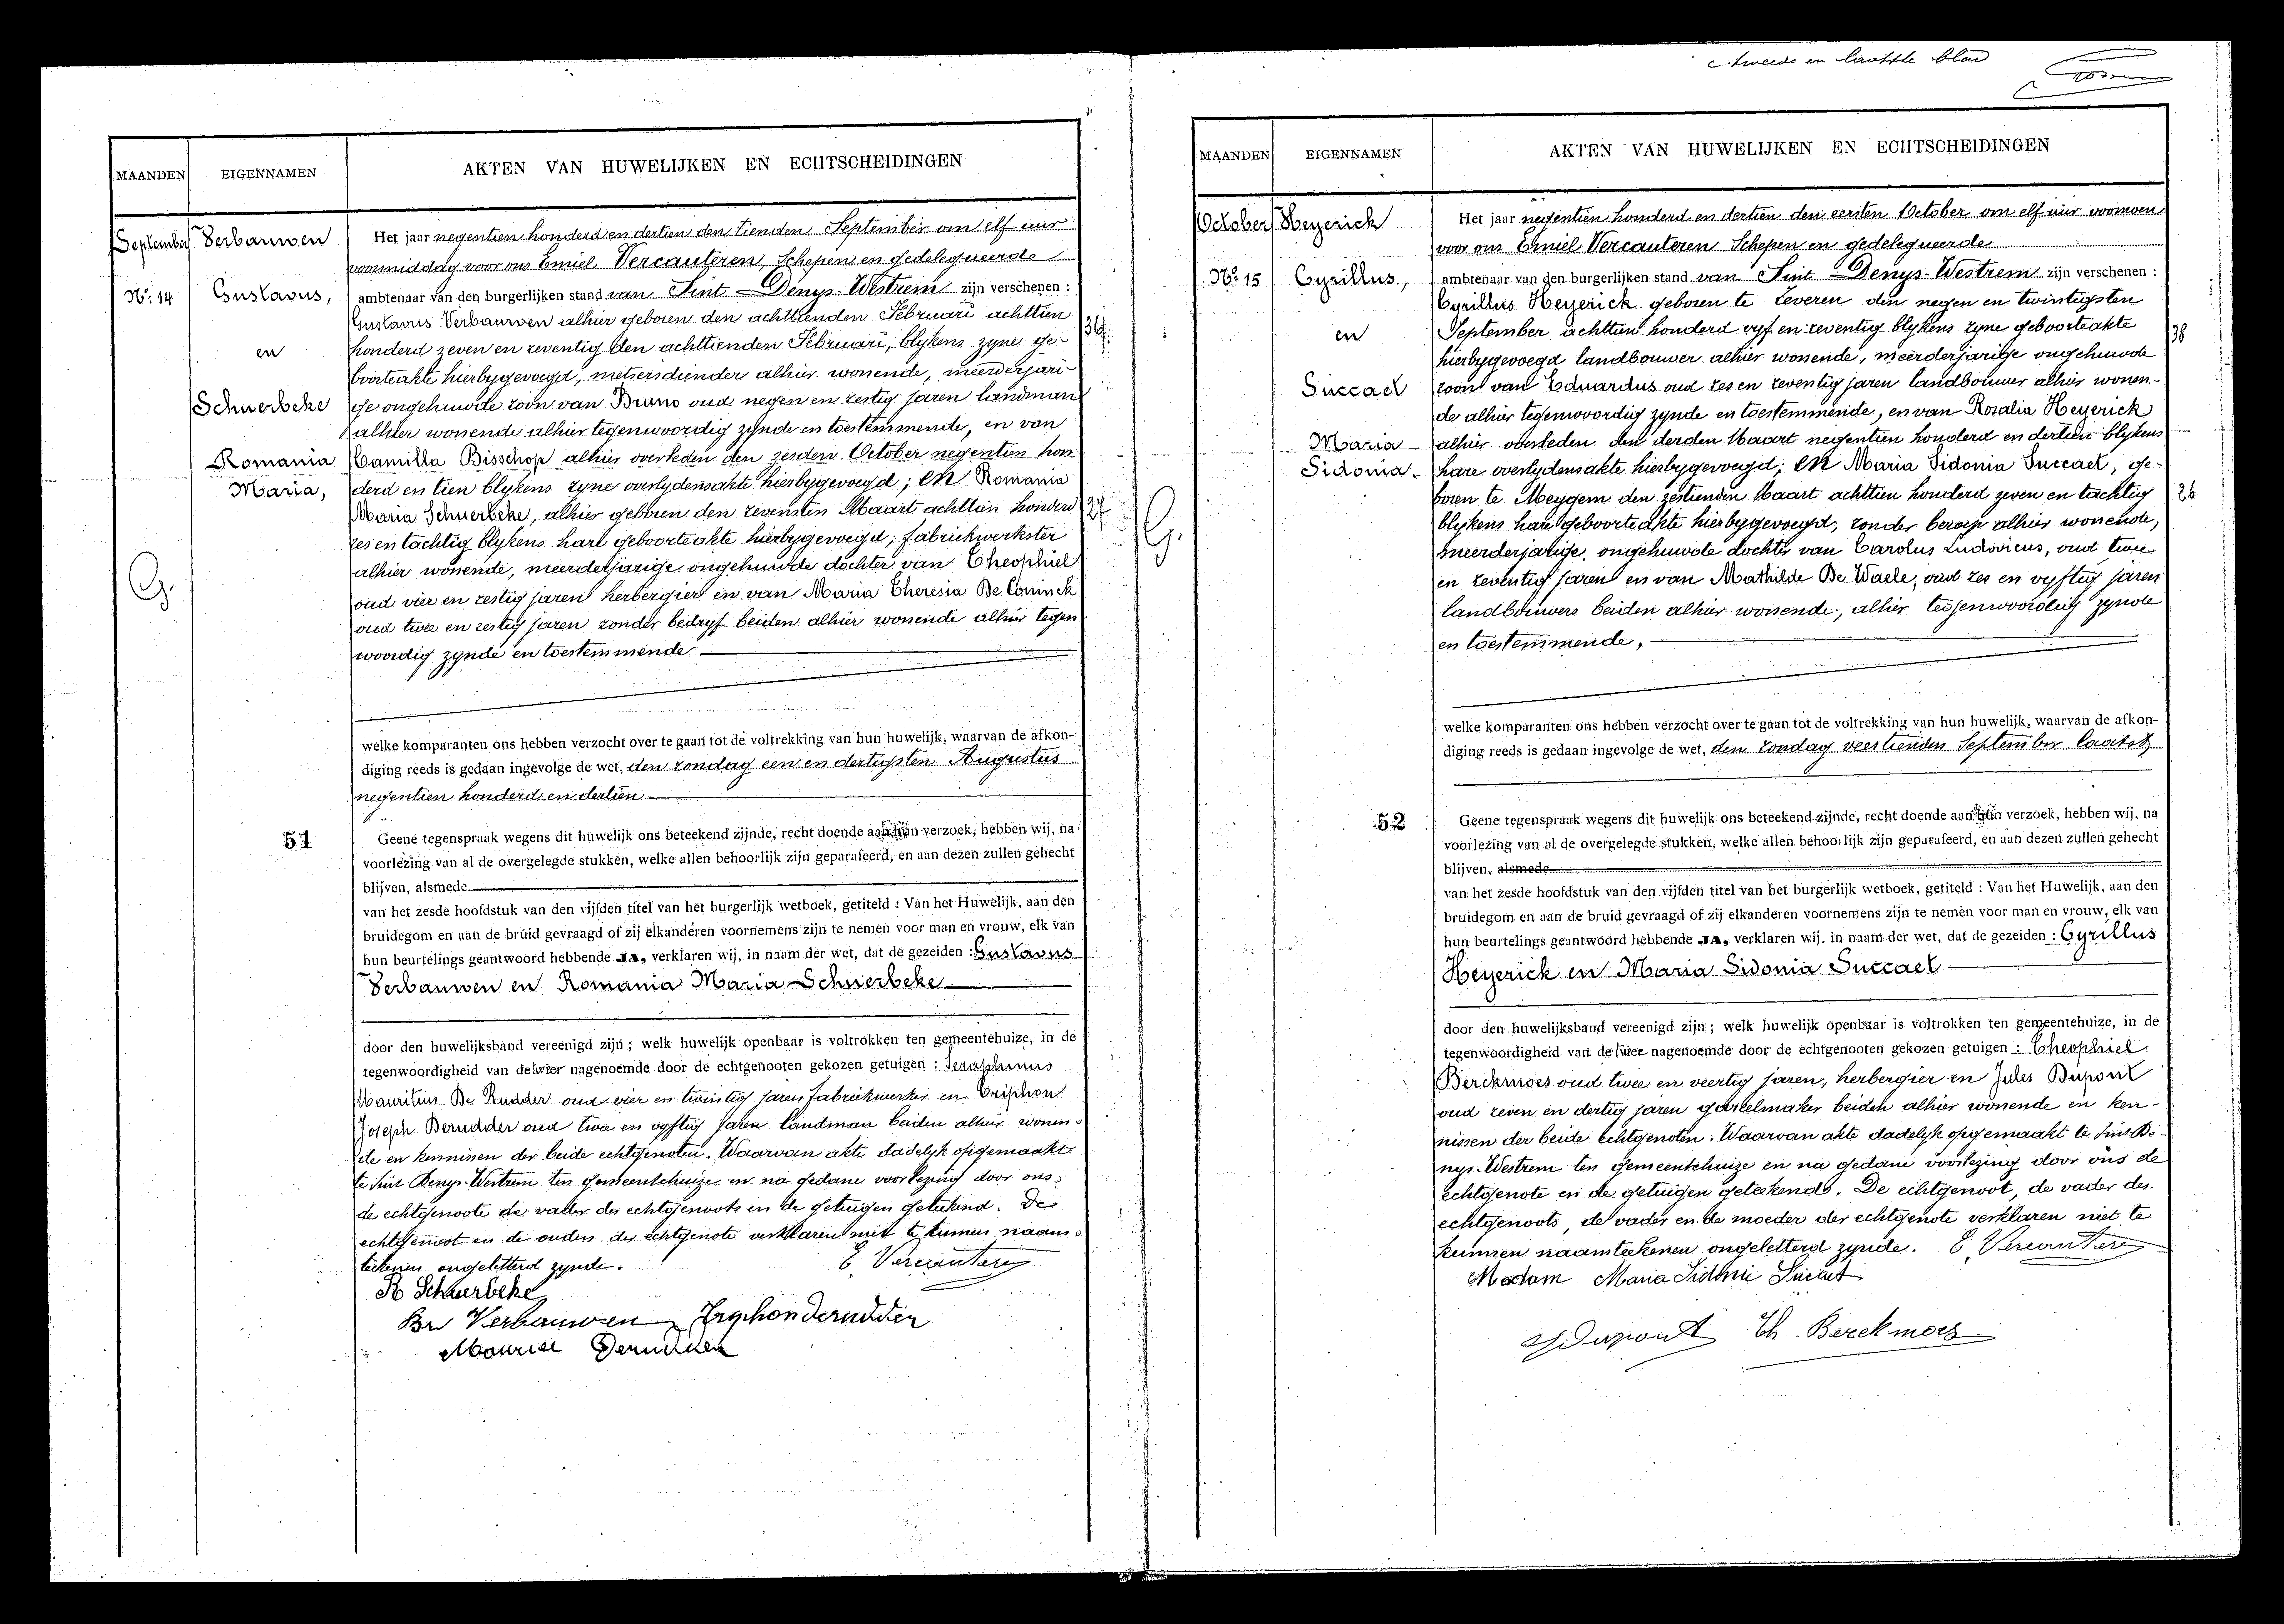 tweede en laatste blad
MAANDEN
EIGENNAMEN
AKTEN VAN HUWELIJKEN EN ECHTSCHEIDINGEN
September
Verbauwen
Nº. 14
Gustavus,
en
Schuerbeke
Romania
Maria,
G.
51
Het jaar negentien honderd en dertien den tienden September om elf uur
voormiddag voor ons Emiel Vercauteren, Schepen en gedelegueerde
ambtenaar van den burgerlijken stand van Sint-Denys-Westrem zijn verschenen :
Gustavus Verbauwen alhier geboren den achttienden Februari achttien
honderd zeven en zeventig den achttienden Februari, blykens zyne ge-
36
boorteakte hierbygevoegd, metsersdiender alhier wonende, meerderjari-
ge ongehuwde zoon van Bruno oud negen en zestig jaren landman
alhier wonende alhier tegenwoordig zynde en toestemmende, en van
Camilla Bisschop alhier overleden den zesden October negentien hon
derd en tien blykens zyne overlydensakte hierbygevoegd; en Romania
Maria Schuerbeke, alhier geboren den zevensten Maart achttien honderd
27
zes en tachtig blykens hare geboorteakte hierbygevoegd; fabriekwerkster
alhier wonende, meerderjarige ongehuwde dochter van Theophiel
oud vier en zestig jaren herbergier en van Maria Theresia De Coninck
oud twee en zestig jaren zonder bedryf beiden alhier wonende alhier tegen
woordig zynde en toestemmende
welke komparanten ons hebben verzocht over te gaan tot de voltrekking van hun huwelijk, waarvan de afkon-
diging reeds is gedaan ingevolge de wet, den zondag een en dertigsten Augustus
negentien honderd en dertien
Geene tegenspraak wegens dit huwelijk ons beteekend zijnde, recht doende aan hun verzoek, hebben wij, na
voorlezing van al de overgelegde stukken, welke allen behoorlijk zijn geparafeerd, en aan dezen zullen gehecht
blijven, alsmede
van het zesde hoofdstuk van den vijfden titel van het burgerlijk wetboek, getiteld : Van het Huwelijk, aan den
bruidegom en aan de bruid gevraagd of zij elkanderen voornemens zijn te nemen voor man en vrouw, elk van
hun beurtelings geantwoord hebbende JA, verklaren wij, in naam der wet, dat de gezeiden : Gustavus
Verbauwen en Romania Maria Schuerbeke
door den huwelijksband vereenigd zijn ; welk huwelijk openbaar is voltrokken ten gemeentehuize, in de
tegenwoordigheid van de nagenoemde door de echtgenooten gekozen getuigen : Seraphinus
Mauritius De Rudder oud vier en twintig jaren fabriekwerker en Triphon
Joseph Derudder oud twee en vyftig jaren landman beiden alhier wonen-
de en kennissen der beide echtgenoten. Waarvan akte dadelyk opgemaakt
te Sint Denys-Westrem ten gemeentehuize en na gedane voorlezing door ons
de echtgenoote de vader des echtgenoots en de getuigen geteekend. De
echtgenoot en de ouders der echtgenote verklaren niet te kunnen naam-
teekenen ongeletterd zynde. E. Vercauteren
R Schuerbeke
Br Verbauwen Tryphon derudder
Maurice Derudder
MAANDEN
EIGENNAMEN
AKTEN VAN HUWELIJKEN EN ECHTSCHEIDINGEN
October
Heyerick
Nº. 15
Cyrillus,
en
Succael
Maria
Sidonia
G.
52
Het jaar negentien honderd en dertien den eersten October om elf uur voornoen
voor ons Emiel Vercauteren Schepen en gedelegueerde
ambtenaar van den burgerlijken stand van Sint-Denys-Westrem zijn verschenen :
Cyrillus Heyerick geboren te Zeveren den negen en twintigsten
September achttien honderd vyf en zeventig blykens zyne geboorteakte
38
hierbygevoegd landbouwer alhier wonende, meerderjarige ongehuwde
zoon van Eduardus oud zes en zeventig jaren landbouwer alhier wonen-
de alhier tegenwoordig zynde en toestemmende, en van Rosalia Heyerick
alhier overleden den derden Maart negentien honderd en dertien blykens
hare overlydensakte hierbygevoegd; en Maria Sidonia Succael, ge-
boren te Meygem den zestienden Maart achttien honderd zeven en tachtig
26
blykens hare geboorteakte hierbygevoegd, zonder beroep alhier wonende,
meerderjarige, ongehuwde dochter van Carolus Ludovicus, oud twee
en zeventig jaren en van Mathilde De Waele, oud zes en vyftig jaren
landbouwers beiden alhier wonende, alhier tegenwoordig zynde
en toestemmende,
welke komparanten ons hebben verzocht over te gaan tot de voltrekking van hun huwelijk, waarvan de afkon-
diging reeds is gedaan ingevolge de wet, den zondag veertienden September laatst
Geene tegenspraak wegens dit huwelijk ons beteekend zijnde, recht doende aan hun verzoek, hebben wij, na
voorlezing van al de overgelegde stukken, welke allen behoorlijk zijn geparafeerd, en aan dezen zullen gehecht
blijven, alsmede
van het zesde hoofdstuk van den vijfden titel van het burgerlijk wetboek, getiteld : Van het Huwelijk, aan den
bruidegom en aan de bruid gevraagd of zij elkanderen voornemens zijn te nemen voor man en vrouw, elk van
hun beurtelings geantwoord hebbende JA, verklaren wij, in naam der wet, dat de gezeiden : Cyrillus
Heyerick en Maria Sidonia Succael
door den huwelijksband vereenigd zijn ; welk huwelijk openbaar is voltrokken ten gemeentehuize, in de
tegenwoordigheid van de twee nagenoemde door de echtgenooten gekozen getuigen : Theophiel
Berckmoes oud twee en veertig jaren, herbergier en Jules Dupont
oud zeven en dertig jaren gareelmaker beiden alhier wonende en ken-
nissen der beide echtgenoten. Waarvan akte dadelyk opgemaakt te Sint De-
nys-Westrem ten gemeentehuize en na gedane voorlezing door ons de
echtgenote en de getuigen geteekend. De echtgenoot, de vader des
echtgenoots, de vader en de moeder der echtgenote verklaren niet te
kunnen naamteekenen ongeletterd zynde. E. Vercauteren
Madam Maria Sidonie Succael
J. Dupont Th Berckmoes